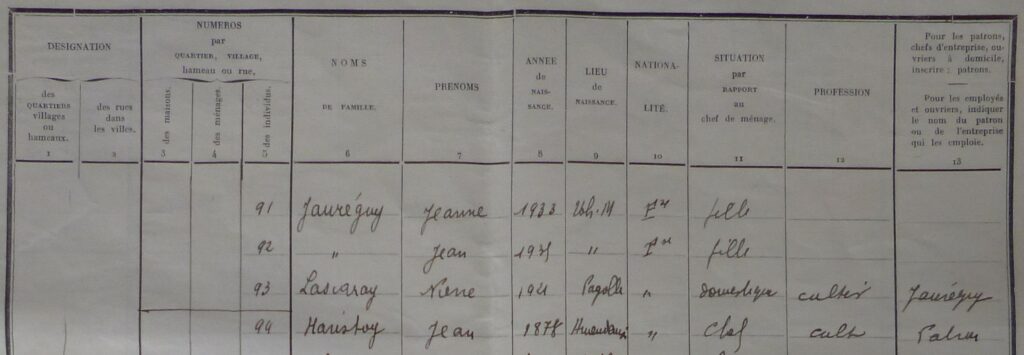 DESIGNATION
des QUARTIERS villages ou hameaux.
des rues dans les villes.
NUMEROS par QUARTIER, VILLAGE, hameau ou rue,
des maisons.
des ménages.
des individus.
NOMS DE FAMILLE.
PRÉNOMS
ANNEE de NAIS- SANCE.
LIEU de NAISSANCE.
NATIONA- LITÉ.
SITUATION par RAPPORT au chef de ménage.
PROFESSION
Pour les patrons, chefs d'entreprise, ou- vriers à domicile, inscrire : patrons.
Pour les employés et ouvriers, indiquer le nom du patron ou de l'entreprise qui les emploie.
1 2 3 4 5 6 7 8 9 10 11 12 13
91 Jauréguy Jeanne 1933 fille
92 " Jean " fille
93 Pierre " domestique Jauréguy
94 Haristoy Jean 1878 " Chef cult Patron